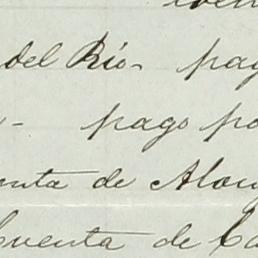 del Río - pag
- pago po
enta de Alon
Cuenta de Ca